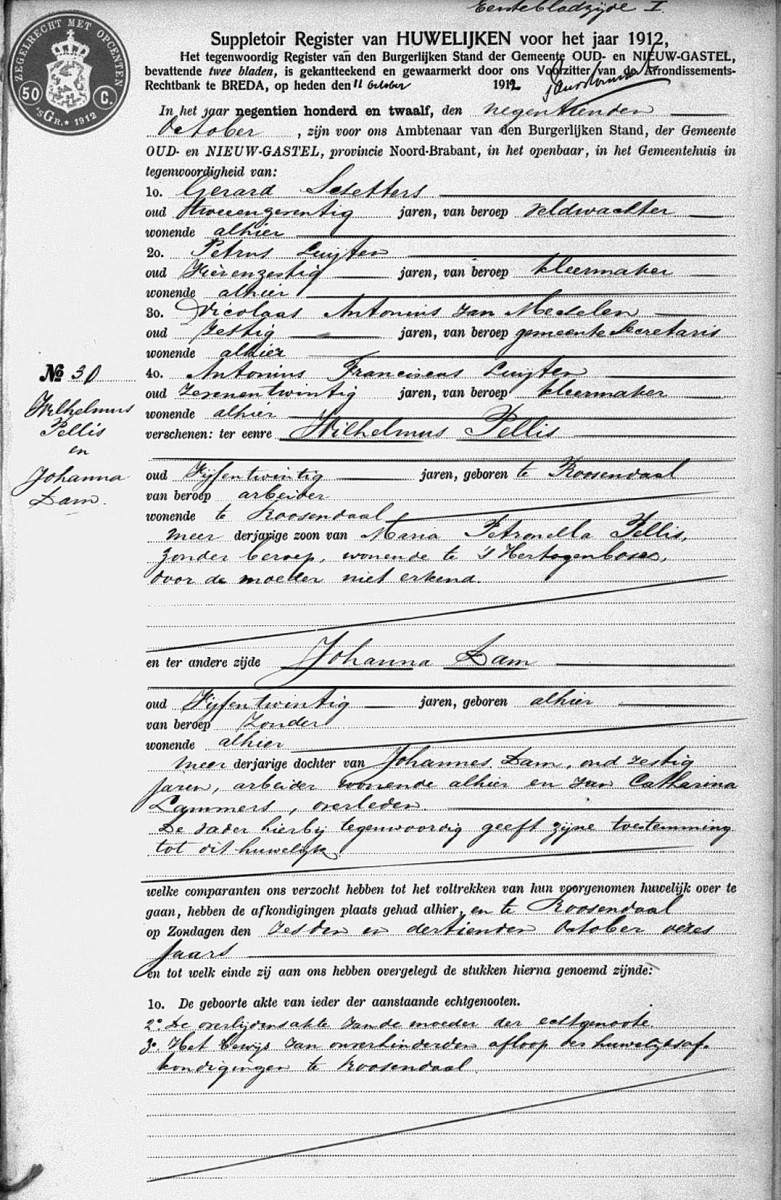 Eerste bladzijde I.
ZEGELRECHT MET OPCENTEN
50 C.
'sGr. * 1912
Suppletoir Register van HUWELIJKEN voor het jaar 1912,
Het tegenwoordig Register van den Burgerlijken Stand der Gemeente OUD- en NIEUW-GASTEL,
bevattende twee bladen, is gekantteekend en gewaarmerkt door ons Voorzitter van de Arrondissements-
Rechtbank te BREDA, op heden den 11 October 1912
In het jaar negentien honderd en twaalf, den negentienden
October , zijn voor ons Ambtenaar van den Burgerlijken Stand, der Gemeente
OUD- en NIEUW-GASTEL, provincie Noord-Brabant, in het openbaar, in het Gemeentehuis in
tegenwoordigheid van:
1o. Gerard
oud jaren, van beroep veldwachter
wonende alhier
2o. Petrus Luijten
oud Vierenzestig jaren, van beroep kleermaker
wonende alhier
3o. Nicolaas Antonius van Mechelen
oud Zestig jaren, van beroep gemeente Secretaris
wonende alhier
No 30
4o. Antonius Franciscus Luijten
oud Zevenentwintig jaren, van beroep kleermaker
wonende alhier
Wilhelmus
Pellis
en
Johanna
Dam.
verschenen: ter eenre Wilhelmus Pellis
oud Vijfentwintig jaren, geboren te Roosendaal
van beroep arbeider
wonende te Roosendaal
meer derjarige zoon van Maria Petronella Pellis,
zonder beroep, wonende te 's Hertogenbosch,
door de moeder niet erkend.
en ter andere zijde Johanna Dam
oud Vijfentwintig jaren, geboren alhier
van beroep Zonder
wonende alhier
meer derjarige dochter van Johannes Dam, oud zestig
jaren, arbeider wonende alhier en van Catharina
Lammers, overleden
De vader hierbij tegenwoordig geeft zijne toestemming
tot dit huwelijk
welke comparanten ons verzocht hebben tot het voltrekken van hun voorgenomen huwelijk over te
gaan, hebben de afkondigingen plaats gehad alhier, en te Roosendaal
op Zondagen den zesden en dertienden October dezes
jaars
en tot welk einde zij aan ons hebben overgelegd de stukken hierna genoemd zijnde:
1o. De geboorte akte van ieder der aanstaande echtgenooten.
2o De overlijdensakte van de moeder der echtgenoote
3o Het bewijs van onverhinderden afloop der huwelijksaf-
kondigingen te Roosendaal